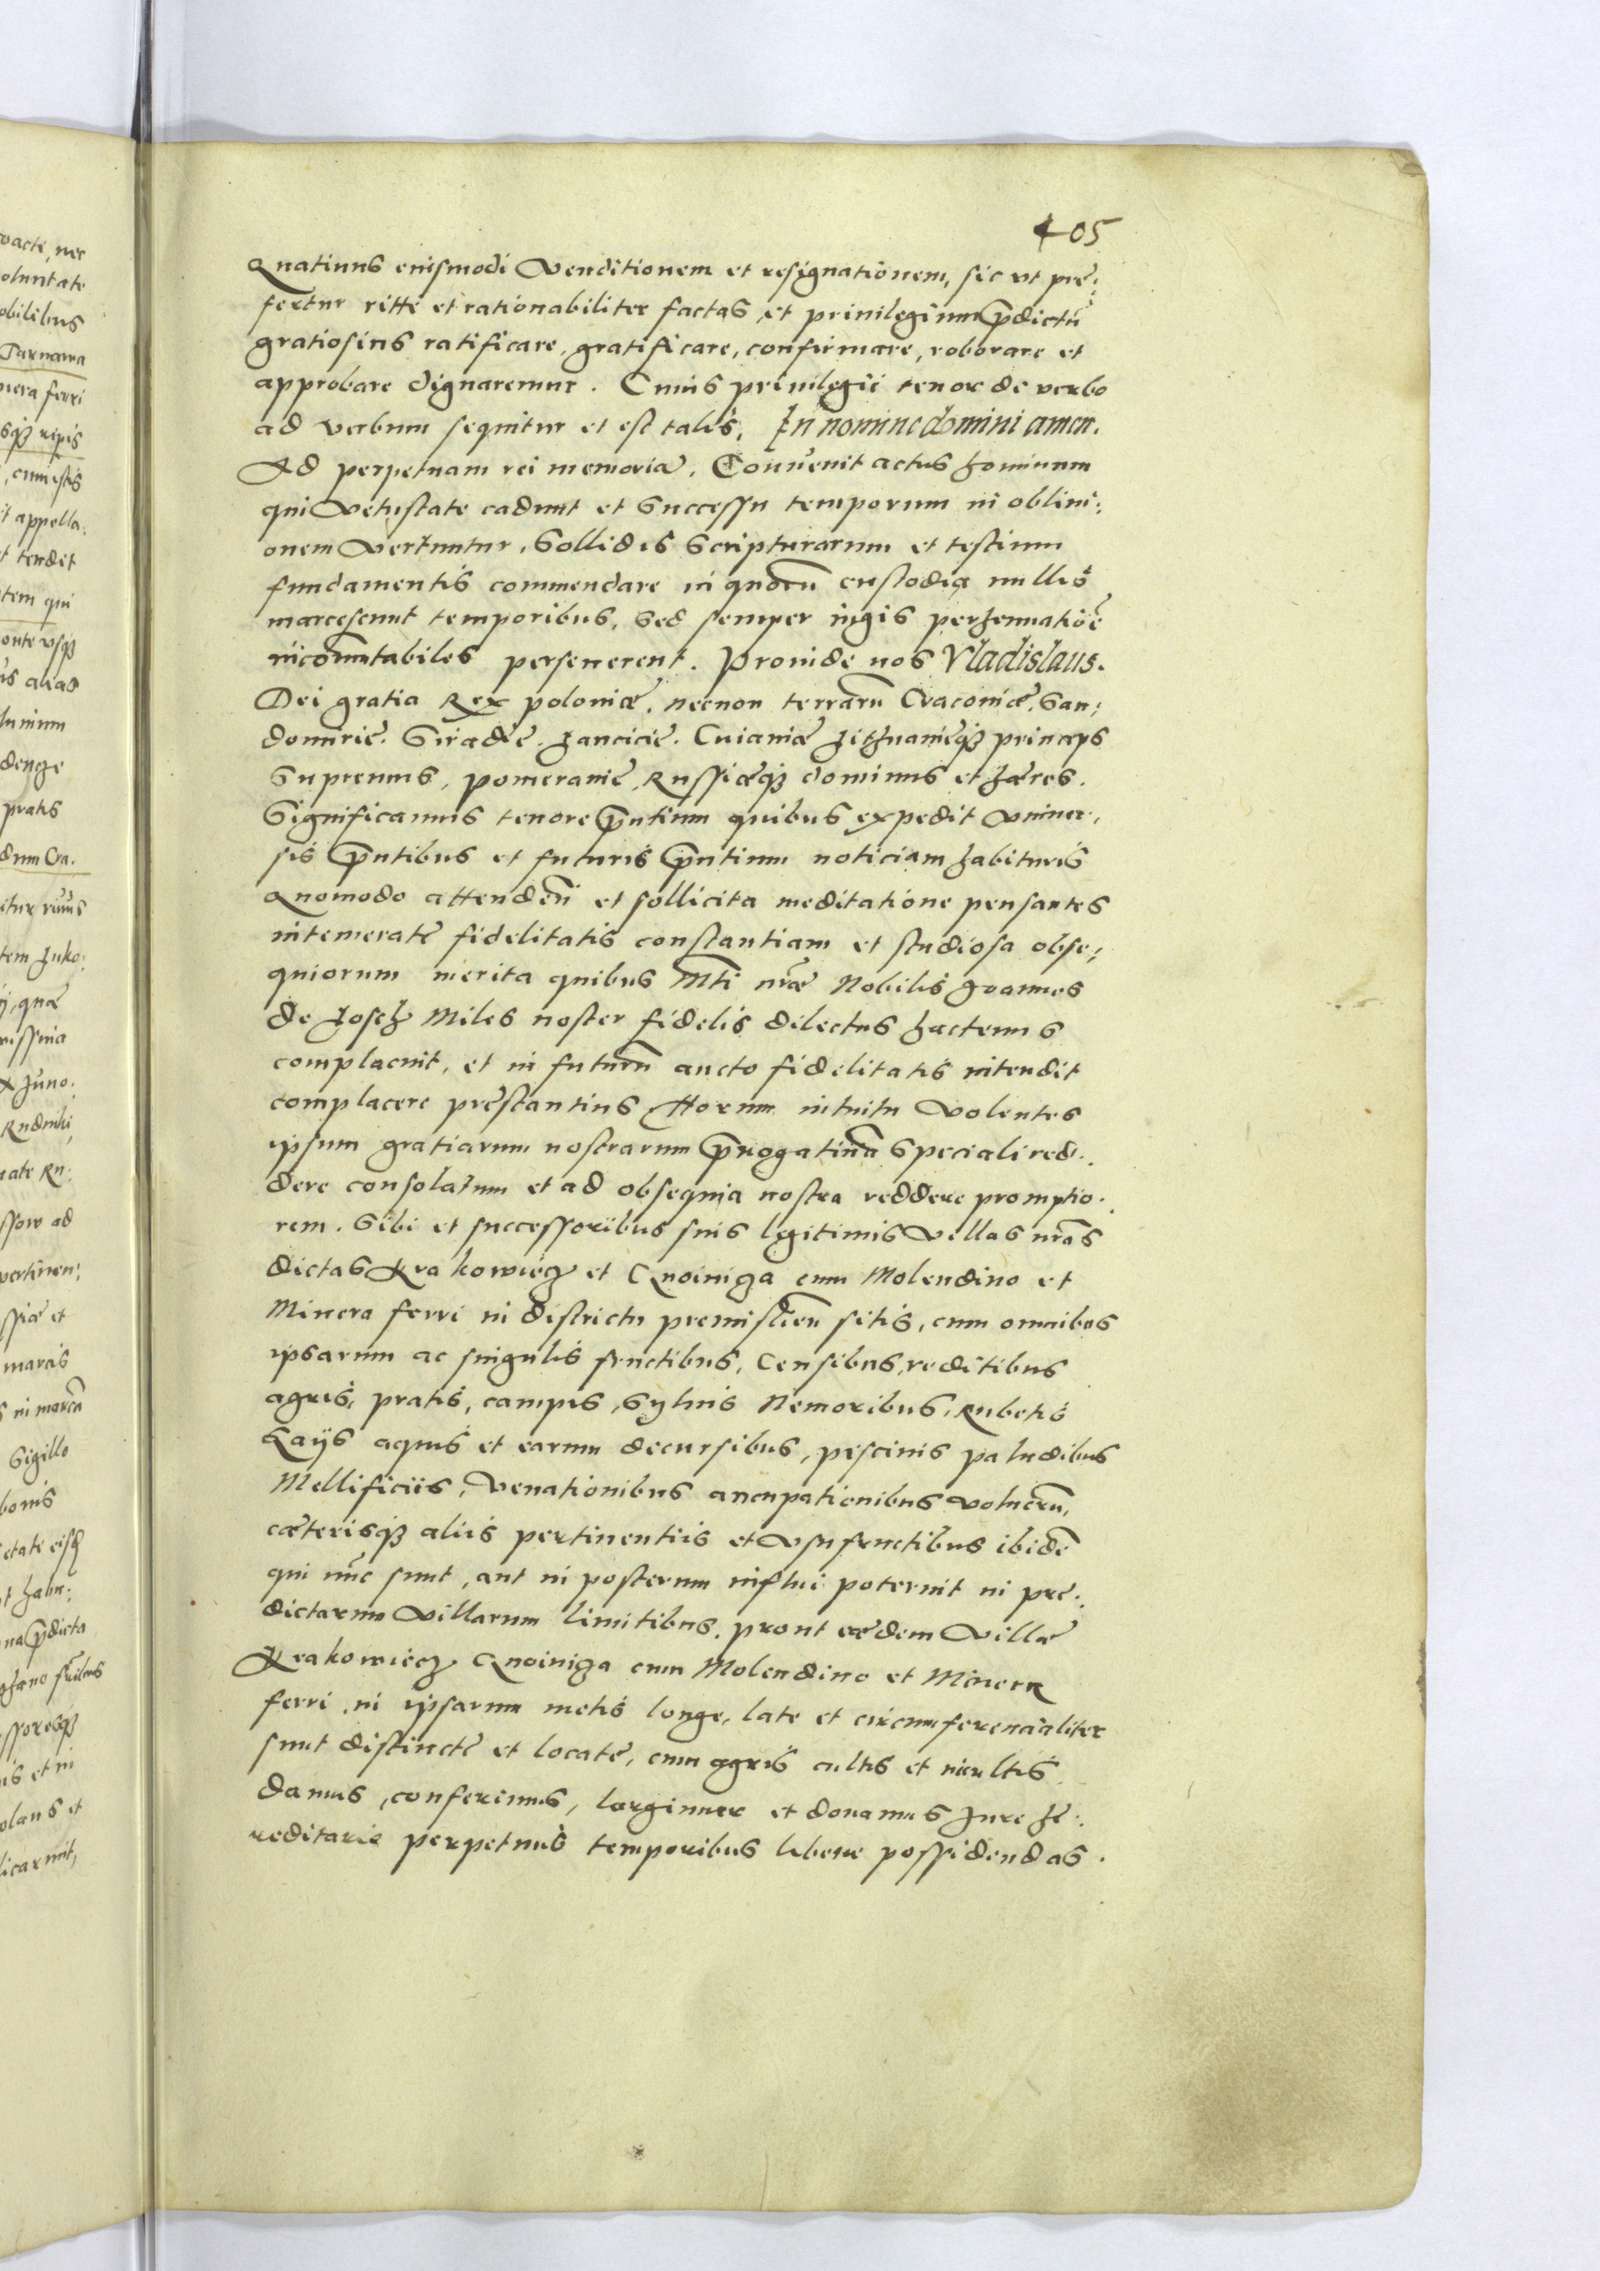 405
Quatinus euismodi Venditionem et resignationem, sic ut prę:
fertur ritte et rationabiliter factas et priuilegium p̄dictū
gratiosius ratificare, gratificare, confirmare, roborare et
approbare dignaremur. Cuius priuilegii tenor de verbo
ad verbum sequitur et est talis. In nomine domini amen.
Ad perpetuam rei memoriā. Conuenit actus hominum
qui Vetustate cadunt et Successu temporum in obliui:
onem Vertuntur, Sollidis Scripturarum et testium
fundamentis commendare in quorū custodia nullis
marcescunt temporibus, Sed semper iugis perhennatiōe
incōmutabiles perseuerent. Proinde nos Vladislaus.
Dei gratia Rex poloniæ, necnon terrarū Cracouiæ, San:
domirię. Siradię. Lancicię. Cuiauiæ Lithuanięqʒ princeps
Supremus, pomeranię, Russiæqʒ dominus et hæres.
Significamus tenore p̄ntium quibus expedit Vniuer,
sis p̄ntibus et futuris p̄ntium noticiam habituris
Quomodo attendeñ et sollicita meditatione pensantes
intemeratę fidelitatis constantiam et studiosa obse:
quiorum merita quibus Mti nr̄æ Nobilis Joannes
de Losch Miles noster fidelis dilectus hactenus
complacuit, et in futurū aucto fidelitatis intendit
complacere pręstantius Horum intuitu Volentes
ipsum gratiarum nostrarum p̄rogatiua Speciali red:
dere consolatum et ad obsequia nostra reddere promptio:
rem. Sibi et successoribus suis legitimis Villas nr̄as
dictas Krakowiecz et Gnoiniza cum Molendino et
Minera ferri in districtu premislień sitis, cum omnibus
ipsarum ac singulis fructibus, Censibus, reditibus
agris, pratis, campis, Syluis Nemoribus, Rubetis
Gaÿs aquis et earum decursibus, piscinis paludibus
Mellificiis, Venationibus aucupationibus Volucrū,
cæterisqʒ aliis pertinentiis et Vsufructibus ibidē
qui nūc sunt, aut in posterum influi poterint in prę:
dictarum Villarum limitibus, prout eædem Villæ
Krakowiecz Gnoiniza cum Molendino et Minera
ferri in ipsarum metis longe, late et circumferencialiter
sunt distinctę et locatę, cum agris cultis et incultis
damus, conferimus, largimur et donamus Jure hę:
reditario perpetuis temporibus libere possidendas.